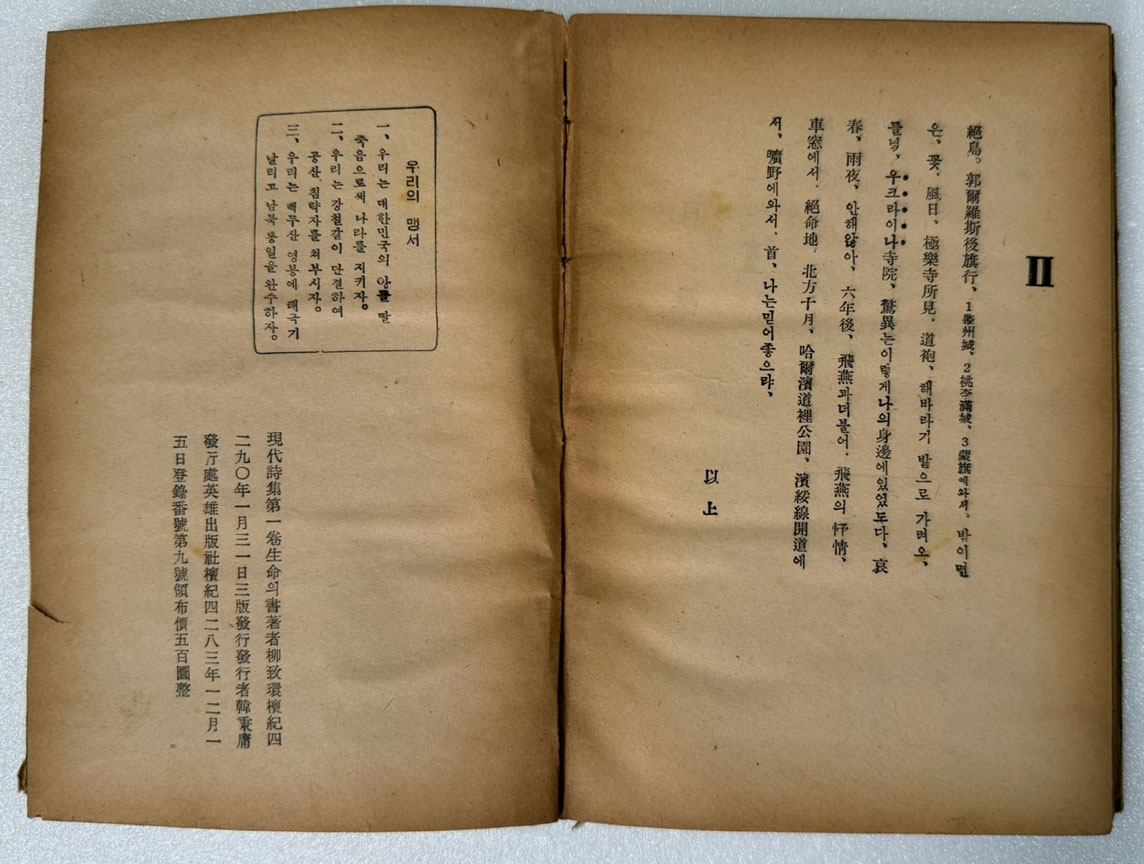 II
絕島。郭爾羅斯後旗行、1肇州城、2桃李滿城、3蒙旗에와서、밤이면
은、꽃、風日、極樂寺所見、道袍、해바라기 밭으로 가려오、
들녘、우크라이나寺院、驚異는이렇게나의身邊에있었도다、哀
春、雨夜、안해앓아、六年後、飛燕과더불어、飛燕의 抒情、
車窓에서、絕命地、北方十月、哈爾濱道裡公園、濱綏線開道에
서、曠野에와서、首、나는믿어좋으랴、
以上
우리의 맹서
一、우리는 대한민국의 아들 딸
죽음으로써 나라를 지키자。
二、우리는 강철같이 단결하여
공산 침략자를 쳐부시자。
三、우리는 백두산 영봉에 태극기
날리고 남북통일을 완수하자。
現代詩集第一卷生命의書著者柳致環檀紀四
二九〇年一月三一日三版發行發行者韓秉庸
發行處英雄出版社檀紀四二八三年一二月一
五日登錄番號第九號領布價五百圜整